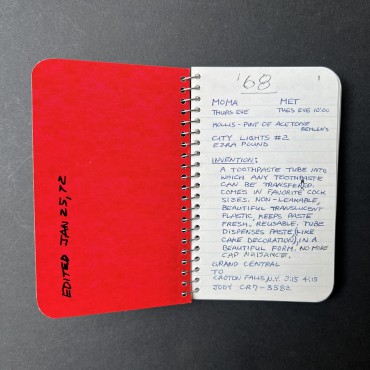 EDITED JAN 25, 72
'68
MOMA MET
THURS EVE TUES EVE 10:00
HOLLIS - PINT OF ACETONE
BEHLEN'S
CITY LIGHTS #2
EZRA POUND
INVENTION:
A TOOTHPASTE TUBE INTO
WHICH ANY TOOTHPASTE
CAN BE TRANSFERED.
COMES IN FAVORITE COCK
SIZES. NON-LEAKABLE,
BEAUTIFUL TRANSLUCENT
PLASTIC, KEEPS PASTE
FRESH, REUSABLE. TUBE
DISPENSES PASTE, (LIKE
CAKE DECORATION), IN A
BEAUTIFUL FORM. NO MORE
CAP NUISANCE.
GRAND CENTRAL
TO
CROTON FALLS, N.Y. 2:15 4:15
JODY CR7-3582